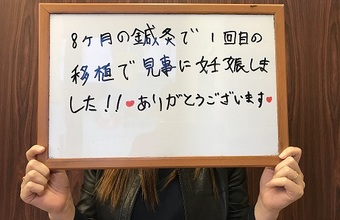 8ヶ月の鍼灸で1回目の
移植で見事に妊娠しま
した!!❤ありがとうございます❤